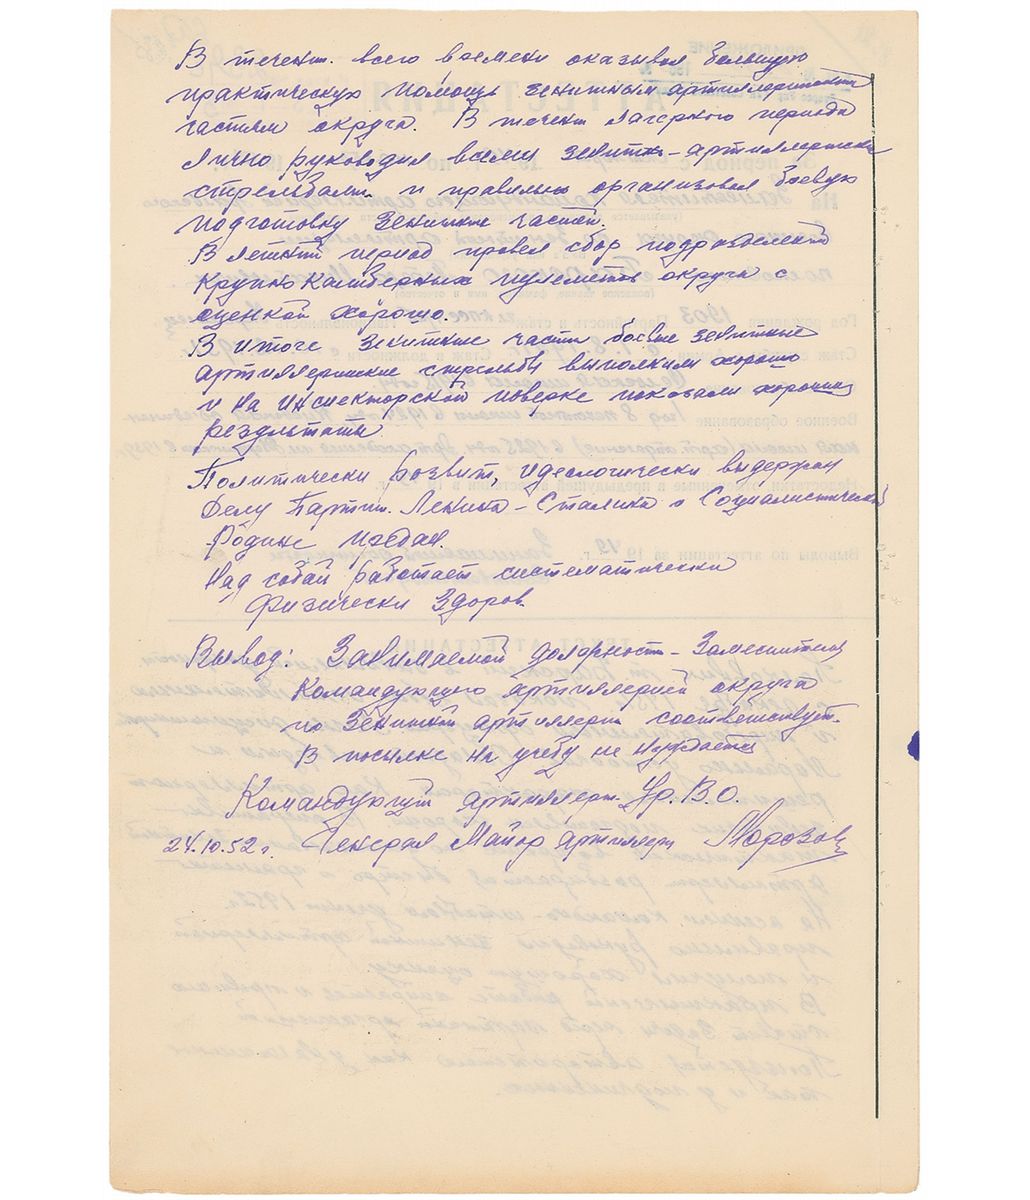 В течен. всего времени оказывал большую
практическую помощь зенитным артиллерийским
частям округа. В течен лагерного периода
лично руководил всеми зенитн-артиллерийски
стрельбами и правильно организовал боевую
подготовку зенитных частей.
В летний период провел сбор подразделений
крупно калиберных пулеметов округа с
оценкой хорошо.
В итоге зенитные части боевые зенитные
артиллерийские стрельбы выполнили хорошо
и на инспекторской поверке показали хорошие
результаты.
Политически развит, идеологически выдержан
Делу Партии Ленина-Сталина и Социалистической
Родине предан
Над собой работает систематически
Физически Здоров.
Вывод: Занимаемой должность-Заместитель
Командующего артиллерией округа
по Зенитной артиллерии соответствует.
В посылке на учебу не нуждается
Командующий артиллерии Ур.В.О.
24.10.52г. Генерал Майор артиллерии Морозов